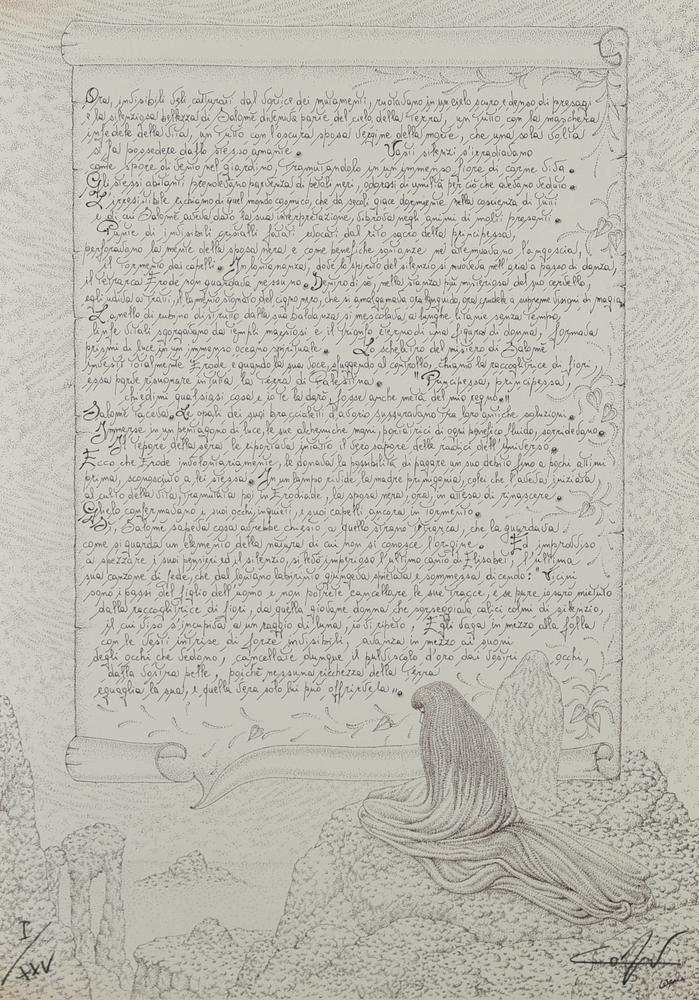 Ora, invisibili veli catturati dal vortice dei mutamenti, ruotavano in un cielo scuro e denso di presagi
e la silenziosa bellezza di Salomè diveniva parte del cielo della Terra, un tutto con la maschera
infedele della vita, un tutto con l'oscura sposa vergine della morte, che una sola volta
si fa possedere dallo stesso amante. Vasti silenzi s'irradiavano
come spore di vento nel giardino, tramutandolo in un immenso fiore di carne viva.
Gli stessi abitanti prendevano parvenza di petali neri, odorosi di umiltà per ciò che avevano veduto.
L'irresistibile richiamo di quel mondo cosmico, che da secoli giace dormiente nella coscienza di tutti
e di cui Salomè aveva dato la sua interpretazione, vibrava negli animi di molti presenti.
Punte di invisibili cristalli fatati evocati dal rito sacro della principessa,
perforavano la mente della sposa nera e come benefiche sostanze ne attenuavano l'angoscia,
il tormento dai capelli. In lontananza, dove lo spirito del silenzio si muoveva nell'aria a passo di danza,
il tetrarca Erode non guardava nessuno. Dentro di sé, nella stanza più misteriosa del suo cervello,
egli udiva a tratti, il lamento strozzato del cigno nero, che si amalgamava ora languido, ora crudele a supreme visioni di magia.
L'anello di rubino distrutto dalla sua baldanza si mescolava a lunghe litanie senza tempo,
linfe vitali sgorgavano da templi maestosi e il trionfo eterno di una figura di donna, formava
prismi di luce in un immenso oceano spirituale. Lo scheletro del mistero di Salomè
investì totalmente Erode e quando la sua voce, sfuggendo al controllo, chiamò la raccoglitrice di fiori,
essa parve risuonare in tutta la Terra di Palestina. "Principessa, principessa,
chiedimi qualsiasi cosa e io te la darò, fosse anche metà del mio regno."
Salomè taceva. Le opali dei suoi braccialetti d'avorio sussurravano tra loro antiche soluzioni.
Immerse in un pentagono di luce, le sue alchemiche mani, portatrici di ogni benefico fluido, sorridevano.
Il tepore della sera le riportava intatto il vero sapore della radici dell'Universo.
Ecco che Erode involontariamente, le donava la possibilità di pagare un suo debito fino a pochi attimi
prima, sconosciuto a lei stessa. In un lampo rivide la madre primigenia, colei che l'aveva iniziata
al culto della vita, tramutata poi in Erodiade, la sposa nera, ora, in attesa di rinascere.
Glielo confermavano i suoi occhi inquieti e i suoi capelli ancora in tormento.
Sì, Salomè sapeva cosa avrebbe chiesto a quello strano Tetrarca, che la guardava
come si guarda un elemento della natura di cui non si conosce l'origine. Ed improvviso
a spezzare i suoi pensieri ed il silenzio, si levò imperioso l'ultimo canto di Elisabet, l'ultima
sua canzone di fede, che dal lontano labirinto giungeva spietata e sommessa dicendo: "Vicini
sono i passi del figlio dell'uomo e non potrete cancellare le sue tracce, e se pure io sarò mietuto
dalla raccoglitrice di fiori, da quella giovane donna che sorseggiava calici colmi di silenzio,
il cui viso s'incupiva a un raggio di luna, io vi ripeto Egli vaga in mezzo alla folla
con le vesti intrise di forze invisibili, avanza in mezzo ai suoni
degli occhi che vedono, cancellate dunque il pulviscolo d'oro dai vostri occhi,
dalla vostra pelle, poiché nessuna ricchezza della Terra
eguaglia la sua, e quella vera solo lui può offrirvela".
I/XXV